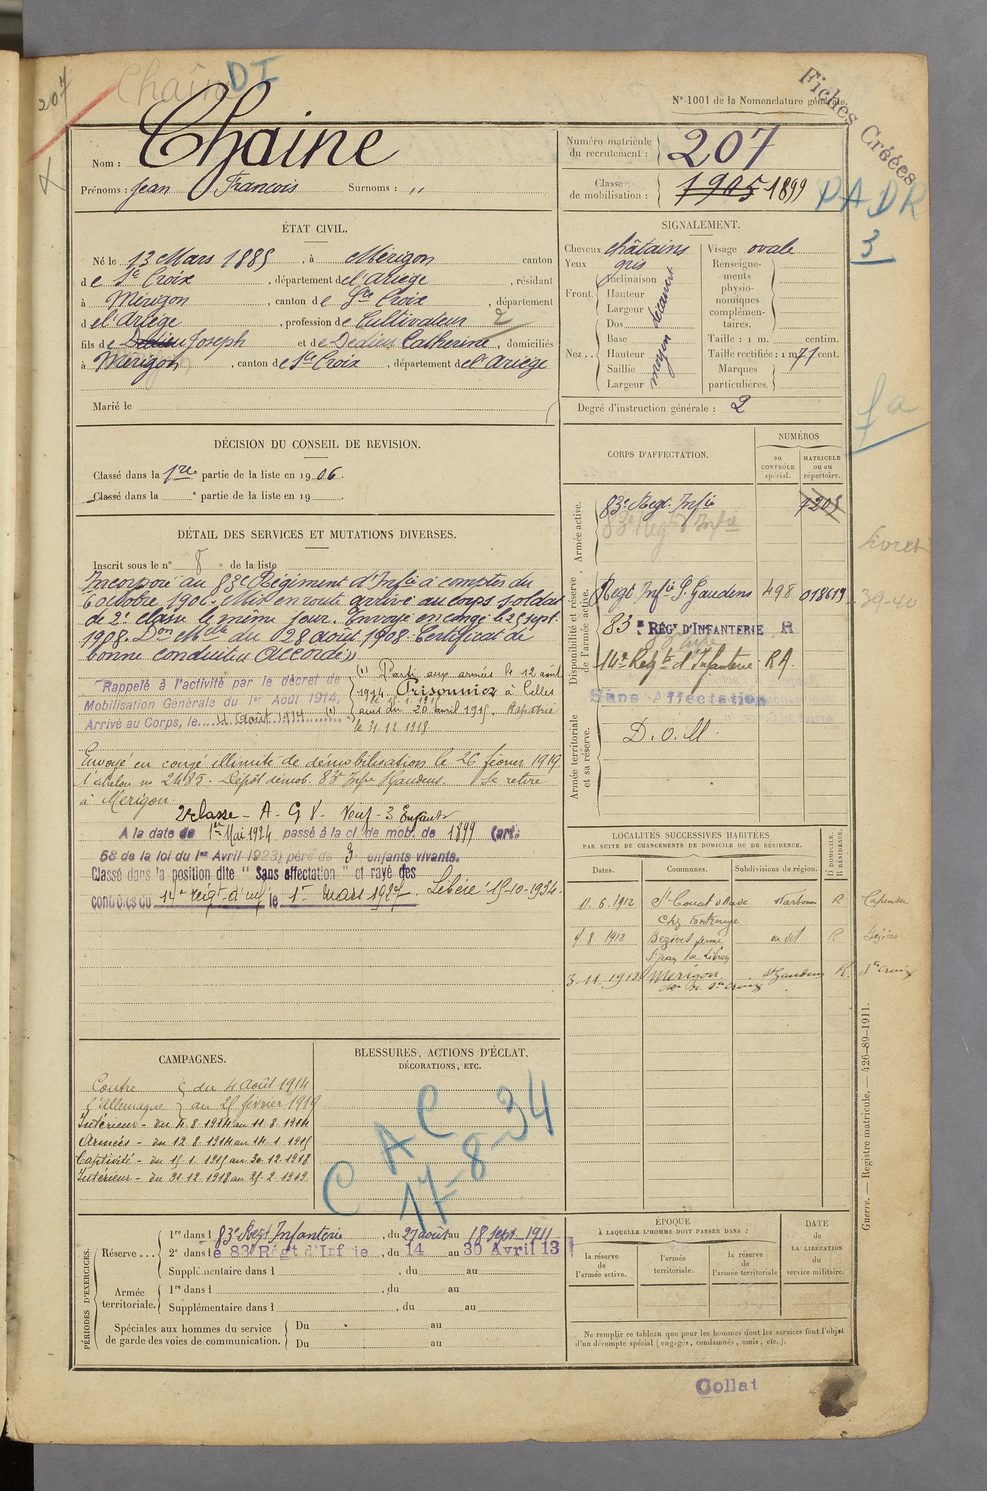 207
Chaine
DI
Fiches Créées
N° 1001 de la Nomenclature générale.
Nom : Chaine
Prénoms : Jean François Surnoms : ,,
Numéro matricule du recrutement : 207
Classe de mobilisation : 1905 1899
PADR
3
ÉTAT CIVIL.
Né le 13 Mars 1885, à Mérigon canton
de Ste Croix, département de l'Ariège, résidant
à Mérigon, canton de Ste Croix, département
de l'Ariège, profession de Cultivateur
fils de Dedieu Joseph et de Dedieu Catherine, domiciliés
à Mérigon, canton de Ste Croix, département de l'Ariège
Marié le
SIGNALEMENT.
Cheveux châtains
Yeux gris
Front. Inclinaison
Hauteur
Largeur
découvert
Nez .. Dos
Base
Hauteur
Saillie
Largeur
moyen
Visage ovale
Renseignements physionomiques complémentaires.
Taille : 1 m. centim.
Taille rectifiée : 1 m 71 cent.
Marques particulières.
Degré d'instruction générale : 2
DÉCISION DU CONSEIL DE REVISION.
Classé dans la 1re partie de la liste en 1906.
Classé dans la ° partie de la liste en 19
CORPS D'AFFECTATION.
NUMÉROS
au CONTRÔLE spécial.
MATRICULE ou au répertoire.
Armée active.
83e Regt. Infie 7205
83e Regt Infie
Disponibilité et réserve de l'armée active.
Regt Infie St Gaudens 498 018619
83e RÉGt D'INFANTERIE R
14e Regt d'Infanterie RA
Sans Affectation
Armée territoriale et sa réserve.
D. o. M.
Livret
39-40
DÉTAIL DES SERVICES ET MUTATIONS DIVERSES.
Inscrit sous le n° 8 de la liste
Incorporé au 83e Régiment d'Infie à compter du
6 octobre 1906. Mis en route arrivé au corps soldat
de 2e classe le même jour. Envoyé en congé le 25 sept.
1908. Don Mlle du 28 août 1908. Certificat de
bonne conduite "Accordé"
Rappelé à l'activité par le décret de
Mobilisation Générale du 1er Août 1914,
Arrivé au Corps, le 4 Août 1914 (1)
(1) Parti aux armées le 12 août
1914. Prisonnier à
le 15.1.1915
avis du 20 avril 1915. Rapatrié
le 31.12.1918
Envoyé en congé illimité de démobilisation le 26 février 1919
l'échelon n° 2435. Dépôt démob. 83e Infie St Gaudens. Se retire
à Mérigon.
2e classe - A - G V - Neuf - 3 Enfants
A la date de 1er Mai 1924 passé à la cl. de mob. de 1899 (art.
58 de la loi du 1er Avril 1923) père de 3 enfants vivants.
Classé dans la position dite "Sans affectation" et rayé des
contrôles du 14e régt d'inf le 1er mars 1927. Libéré 15-10-1934.
LOCALITÉS SUCCESSIVES HABITÉES
PAR SUITE DE CHANGEMENTS DE DOMICILE OU DE RÉSIDENCE.
Dates. Communes. Subdivisions de région. D DOMICILE. R RÉSIDENCE.
11. 6. 1912 St Couat d'Aude Narbonne R Capendu
7 8 1912 Béziers R Béziers
3. 11. 1912 Mérigon St Gaudens R. Ste Croix
con de Ste Croix
CAMPAGNES.
Contre l'Allemagne du 4 Août 1914
au 25 février 1919
Intérieur - du 4. 8. 1914 au 11. 8. 1914
Armées - du 12. 8. 1914 au 14. 1. 1915
Captivité - du 15. 1. 1915 au 30. 12. 1918
Intérieur - du 31. 12. 1918 au 25. 2. 1919
BLESSURES, ACTIONS D'ÉCLAT,
DÉCORATIONS, ETC.
C A C
17-8-34
PÉRIODES D'EXERCICES.
Réserve ... 1re dans l 83e Regt Infanterie, du 27 août au 18 sept 1911
2e dans le 83e Régt d'Infrie, du 14 au 30 Avril 13
Supplémentaire dans l , du au
Armée territoriale. 1re dans l , du au
Supplémentaire dans l , du au
Spéciales aux hommes du service de garde des voies de communication. Du au
Du au
ÉPOQUE
À LAQUELLE L'HOMME DOIT PASSER DANS :
la réserve de l'armée active.
l'armée territoriale.
la réserve de l'armée territoriale
DATE de LA LIBÉRATION du service militaire.
Ne remplir ce tableau que pour les hommes dont les services font l'objet
d'un décompte spécial (engagés, condamnés, omis, etc.).
Guerre. — Registre matricule. — 426-89-1911.
Collat